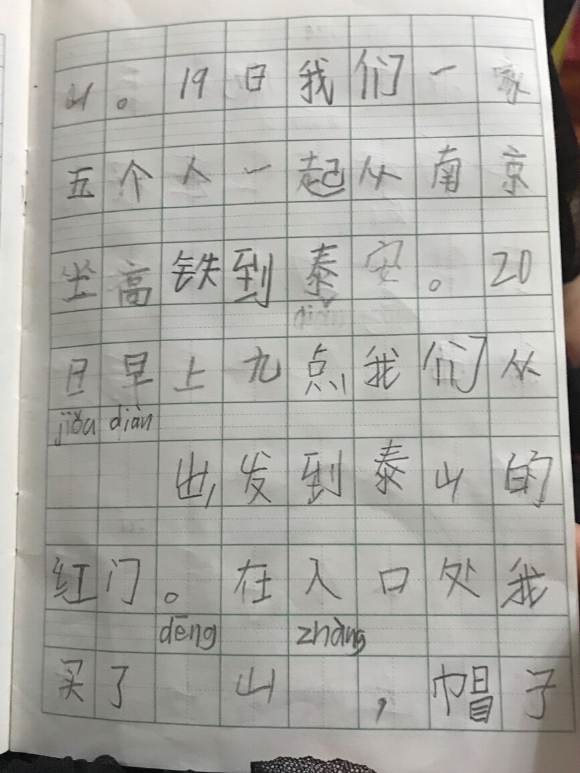 山。19日我们一家
五个人一起从南京
坐高铁到泰安。20
日早上九点我们从
jiǔu diàn
出发到泰山的
红门。在入口处我
dēng zhàng
买了 山 ，帽子